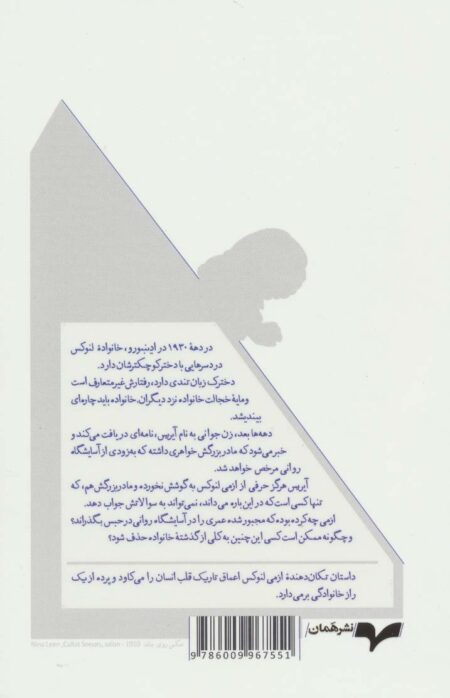 در دههٔ ۱۹۳۰ در ادینبورو، خانوادهٔ لنوکس
دردسرهایی با دختر کوچکترشان دارد.
دخترک زبان تندی دارد، رفتارش غیرمتعارف است
و مایهٔ خجالت خانواده نزد دیگران. خانواده باید چاره‌ای
بیندیشد.
دهه‌ها بعد، زن جوانی به نام آیریس، نامه‌ای دریافت می‌کند و
خبر می‌شود که مادربزرگش خواهری داشته که به‌زودی از آسایشگاه
روانی مرخص خواهد شد.
آیریس هرگز حرفی از ازمی لنوکس به گوشش نخورده و مادربزرگش هم، که
تنها کسی است که در این باره می‌داند، نمی‌تواند به سوالاتش جواب دهد.
ازمی چه کرده بوده که مجبور شده عمری را در آسایشگاه روانی در حبس بگذراند؟
و چگونه ممکن است کسی این چنین به کلی از گذشتهٔ خانواده حذف شود؟
داستان تکان‌دهندهٔ ازمی لنوکس اعماق تاریک قلب انسان را می‌کاود و پرده از یک
راز خانوادگی برمی‌دارد.
نشر هَمان
عکس روی جلد:
9 786009 967551